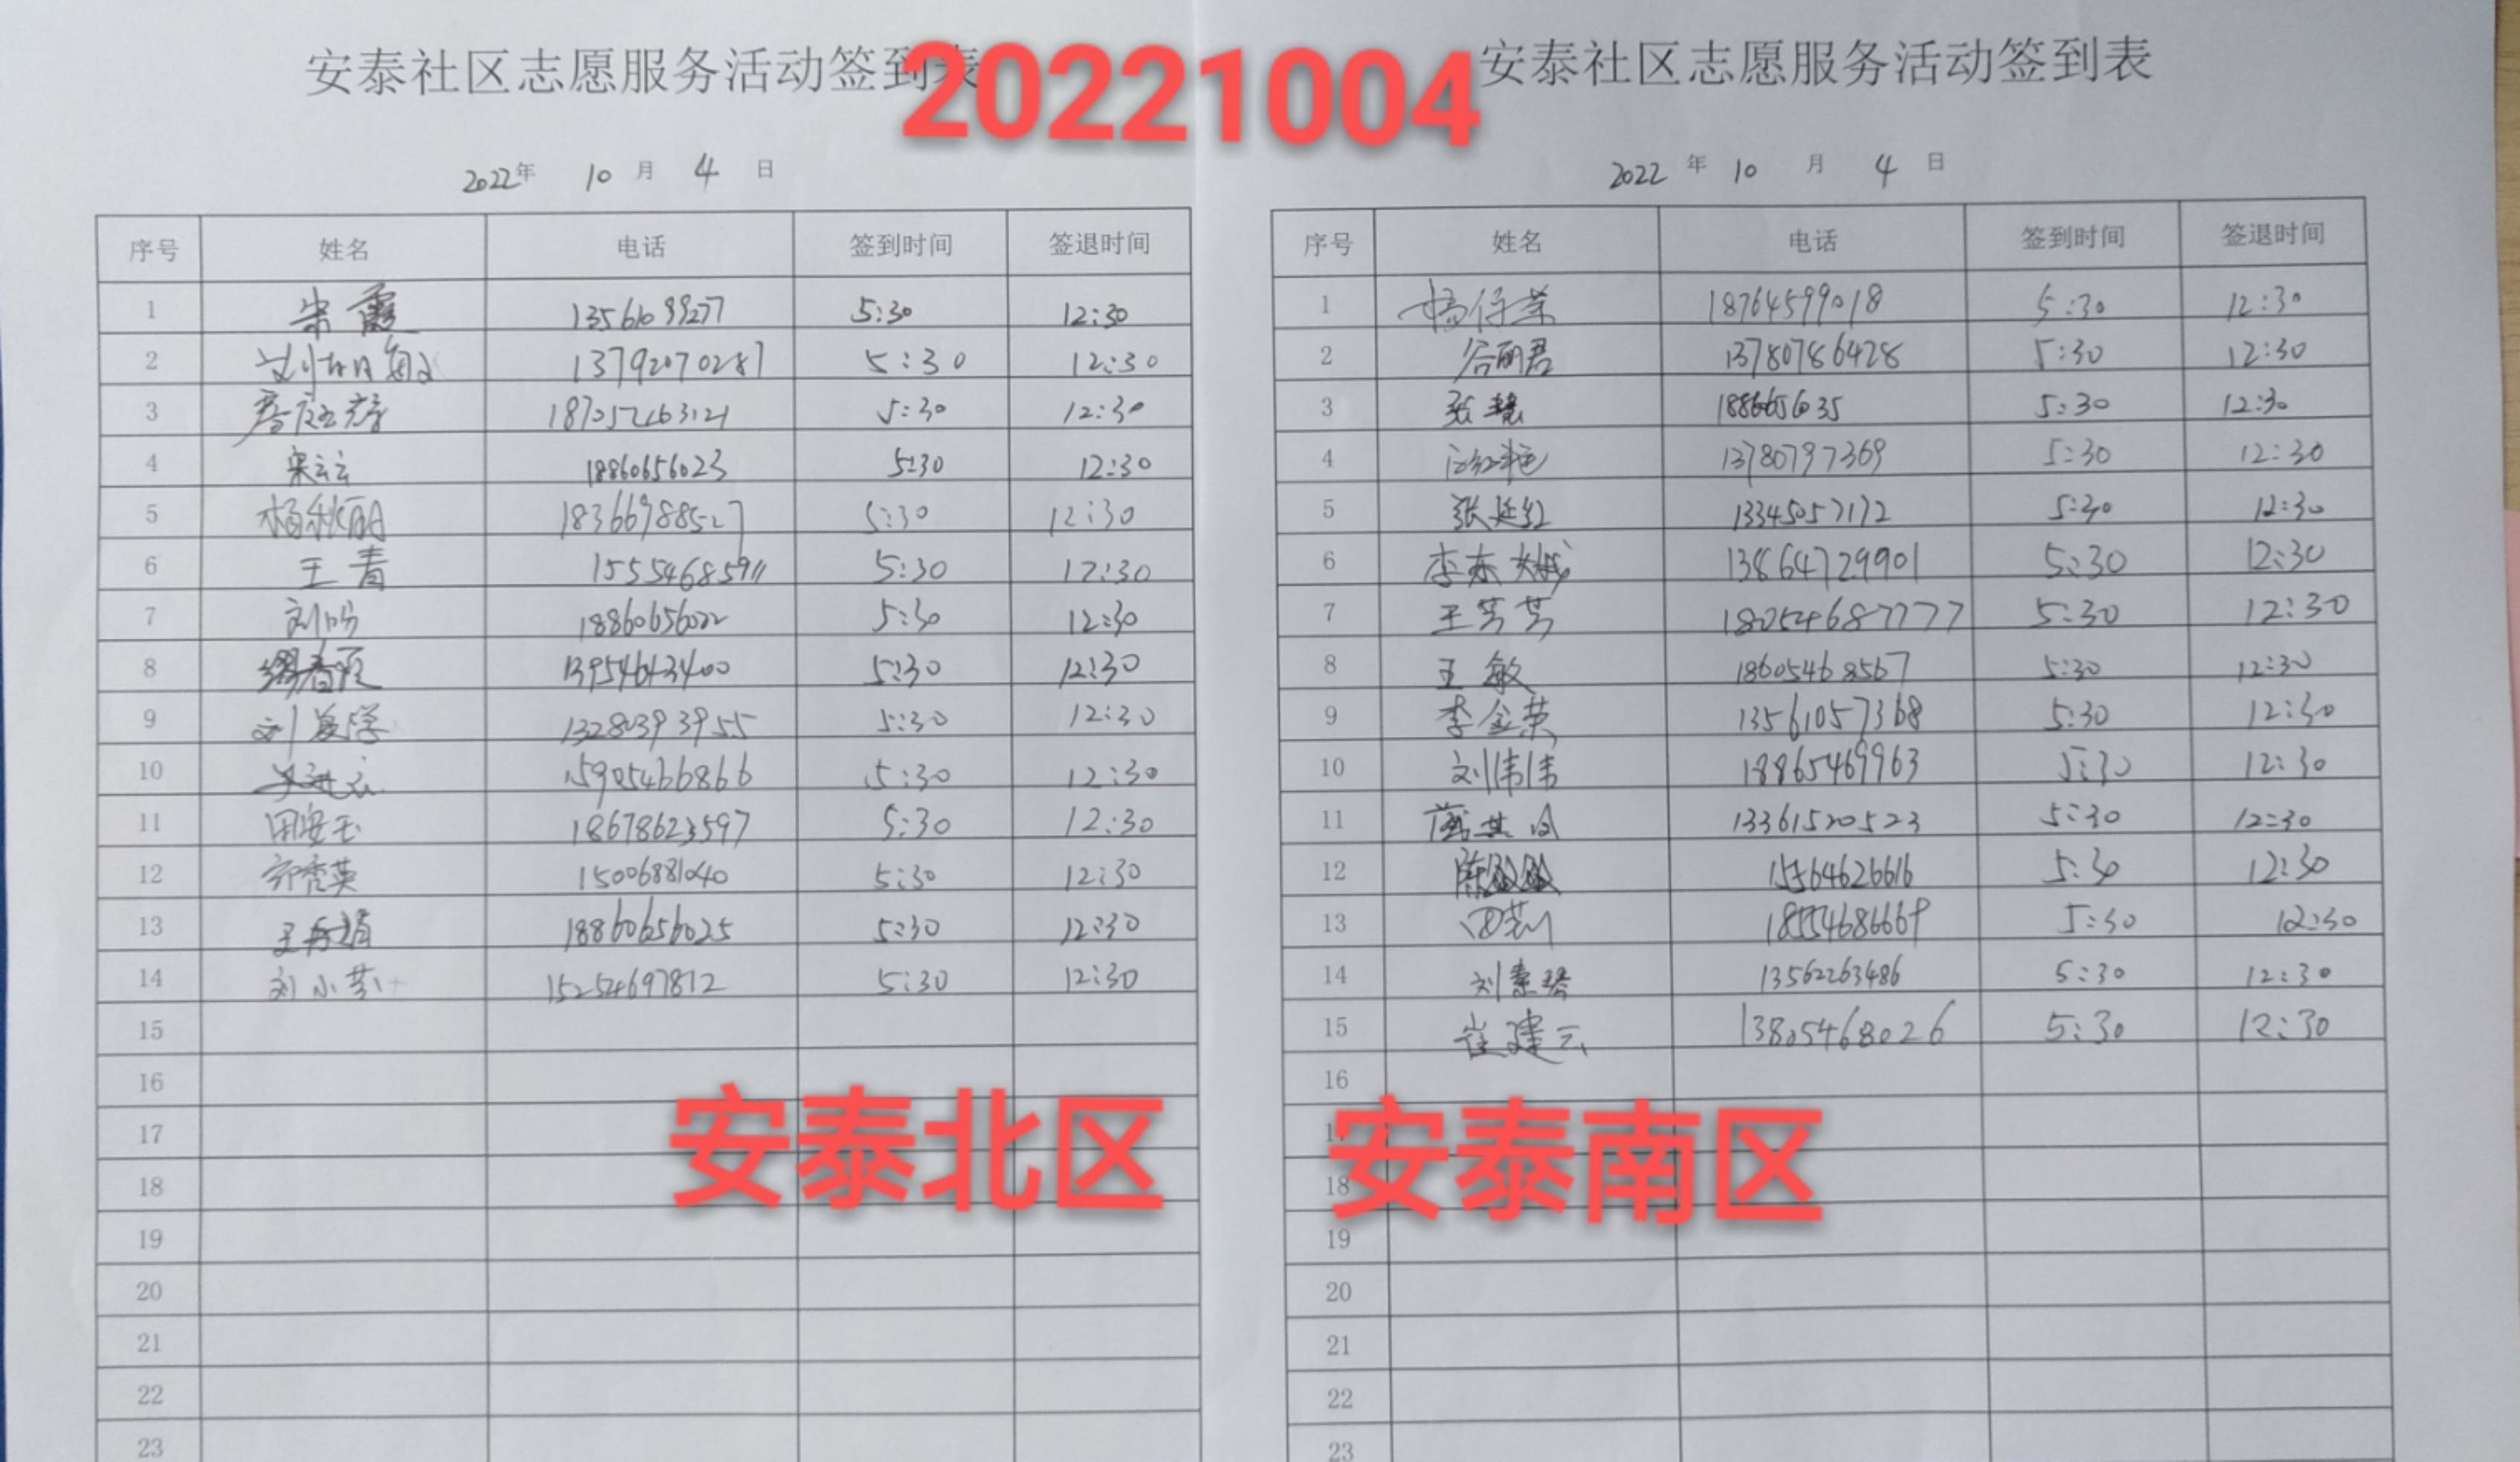 安泰社区志愿服务活动签到表
20221004
2022年 10 月 4 日
序号 姓名 电话 签到时间 签退时间
1 宋霞 13561099277 5:30 12:30
2 13792070287 5:30 12:30
3 18705463121 5:30 12:30
4 宋云云 18860656023 5:30 12:30
5 杨秋丽 18366988527 5:30 12:30
6 王青 15554685911 5:30 12:30
7 18860656022 5:30 12:30
8 13954643400 5:30 12:30
9 刘美学 13280393955 5:30 12:30
10 15905466866 5:30 12:30
11 18678623597 5:30 12:30
12 郭秀英 15006881040 5:30 12:30
13 18860656025 5:30 12:30
14 刘小芬 15254697812 5:30 12:30
15
16
17
18
19
20
21
22
23
安泰北区
安泰社区志愿服务活动签到表
2022 年 10 月 4 日
序号 姓名 电话 签到时间 签退时间
1 18764599018 5:30 12:30
2 谷丽君 13780786428 5:30 12:30
3 张慧 5:30 12:30
4 13780797369 5:30 12:30
5 张延红 13345057172 5:30 12:30
6 13864729901 5:30 12:30
7 王芳芳 18054687777 5:30 12:30
8 王敏 18605468567 5:30 12:30
9 李金荣 13561057368 5:30 12:30
10 刘伟伟 18865469963 5:30 12:30
11 13361520523 5:30 12:30
12 陈敏敏 15564626616 5:30 12:30
13 18554686669 5:30 12:30
14 刘素琴 13562263486 5:30 12:30
15 崔建云 13805468026 5:30 12:30
16
18
19
20
21
22
23
安泰南区